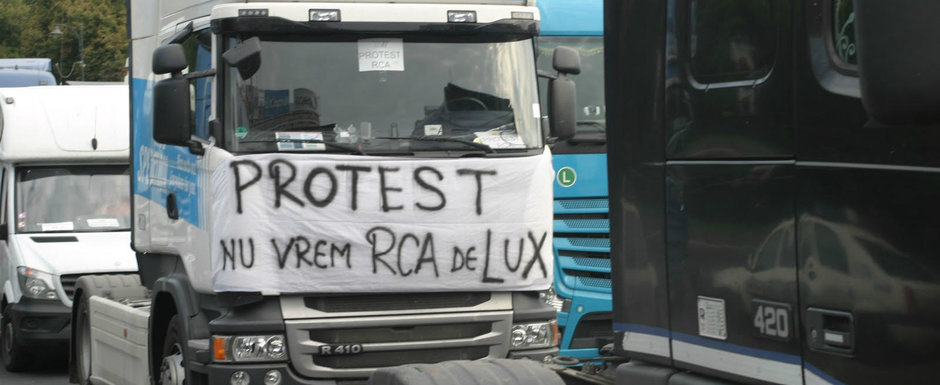 PROTEST
RCA
PROTEST
NU VREM RCA DE LUX
R 410
L
420